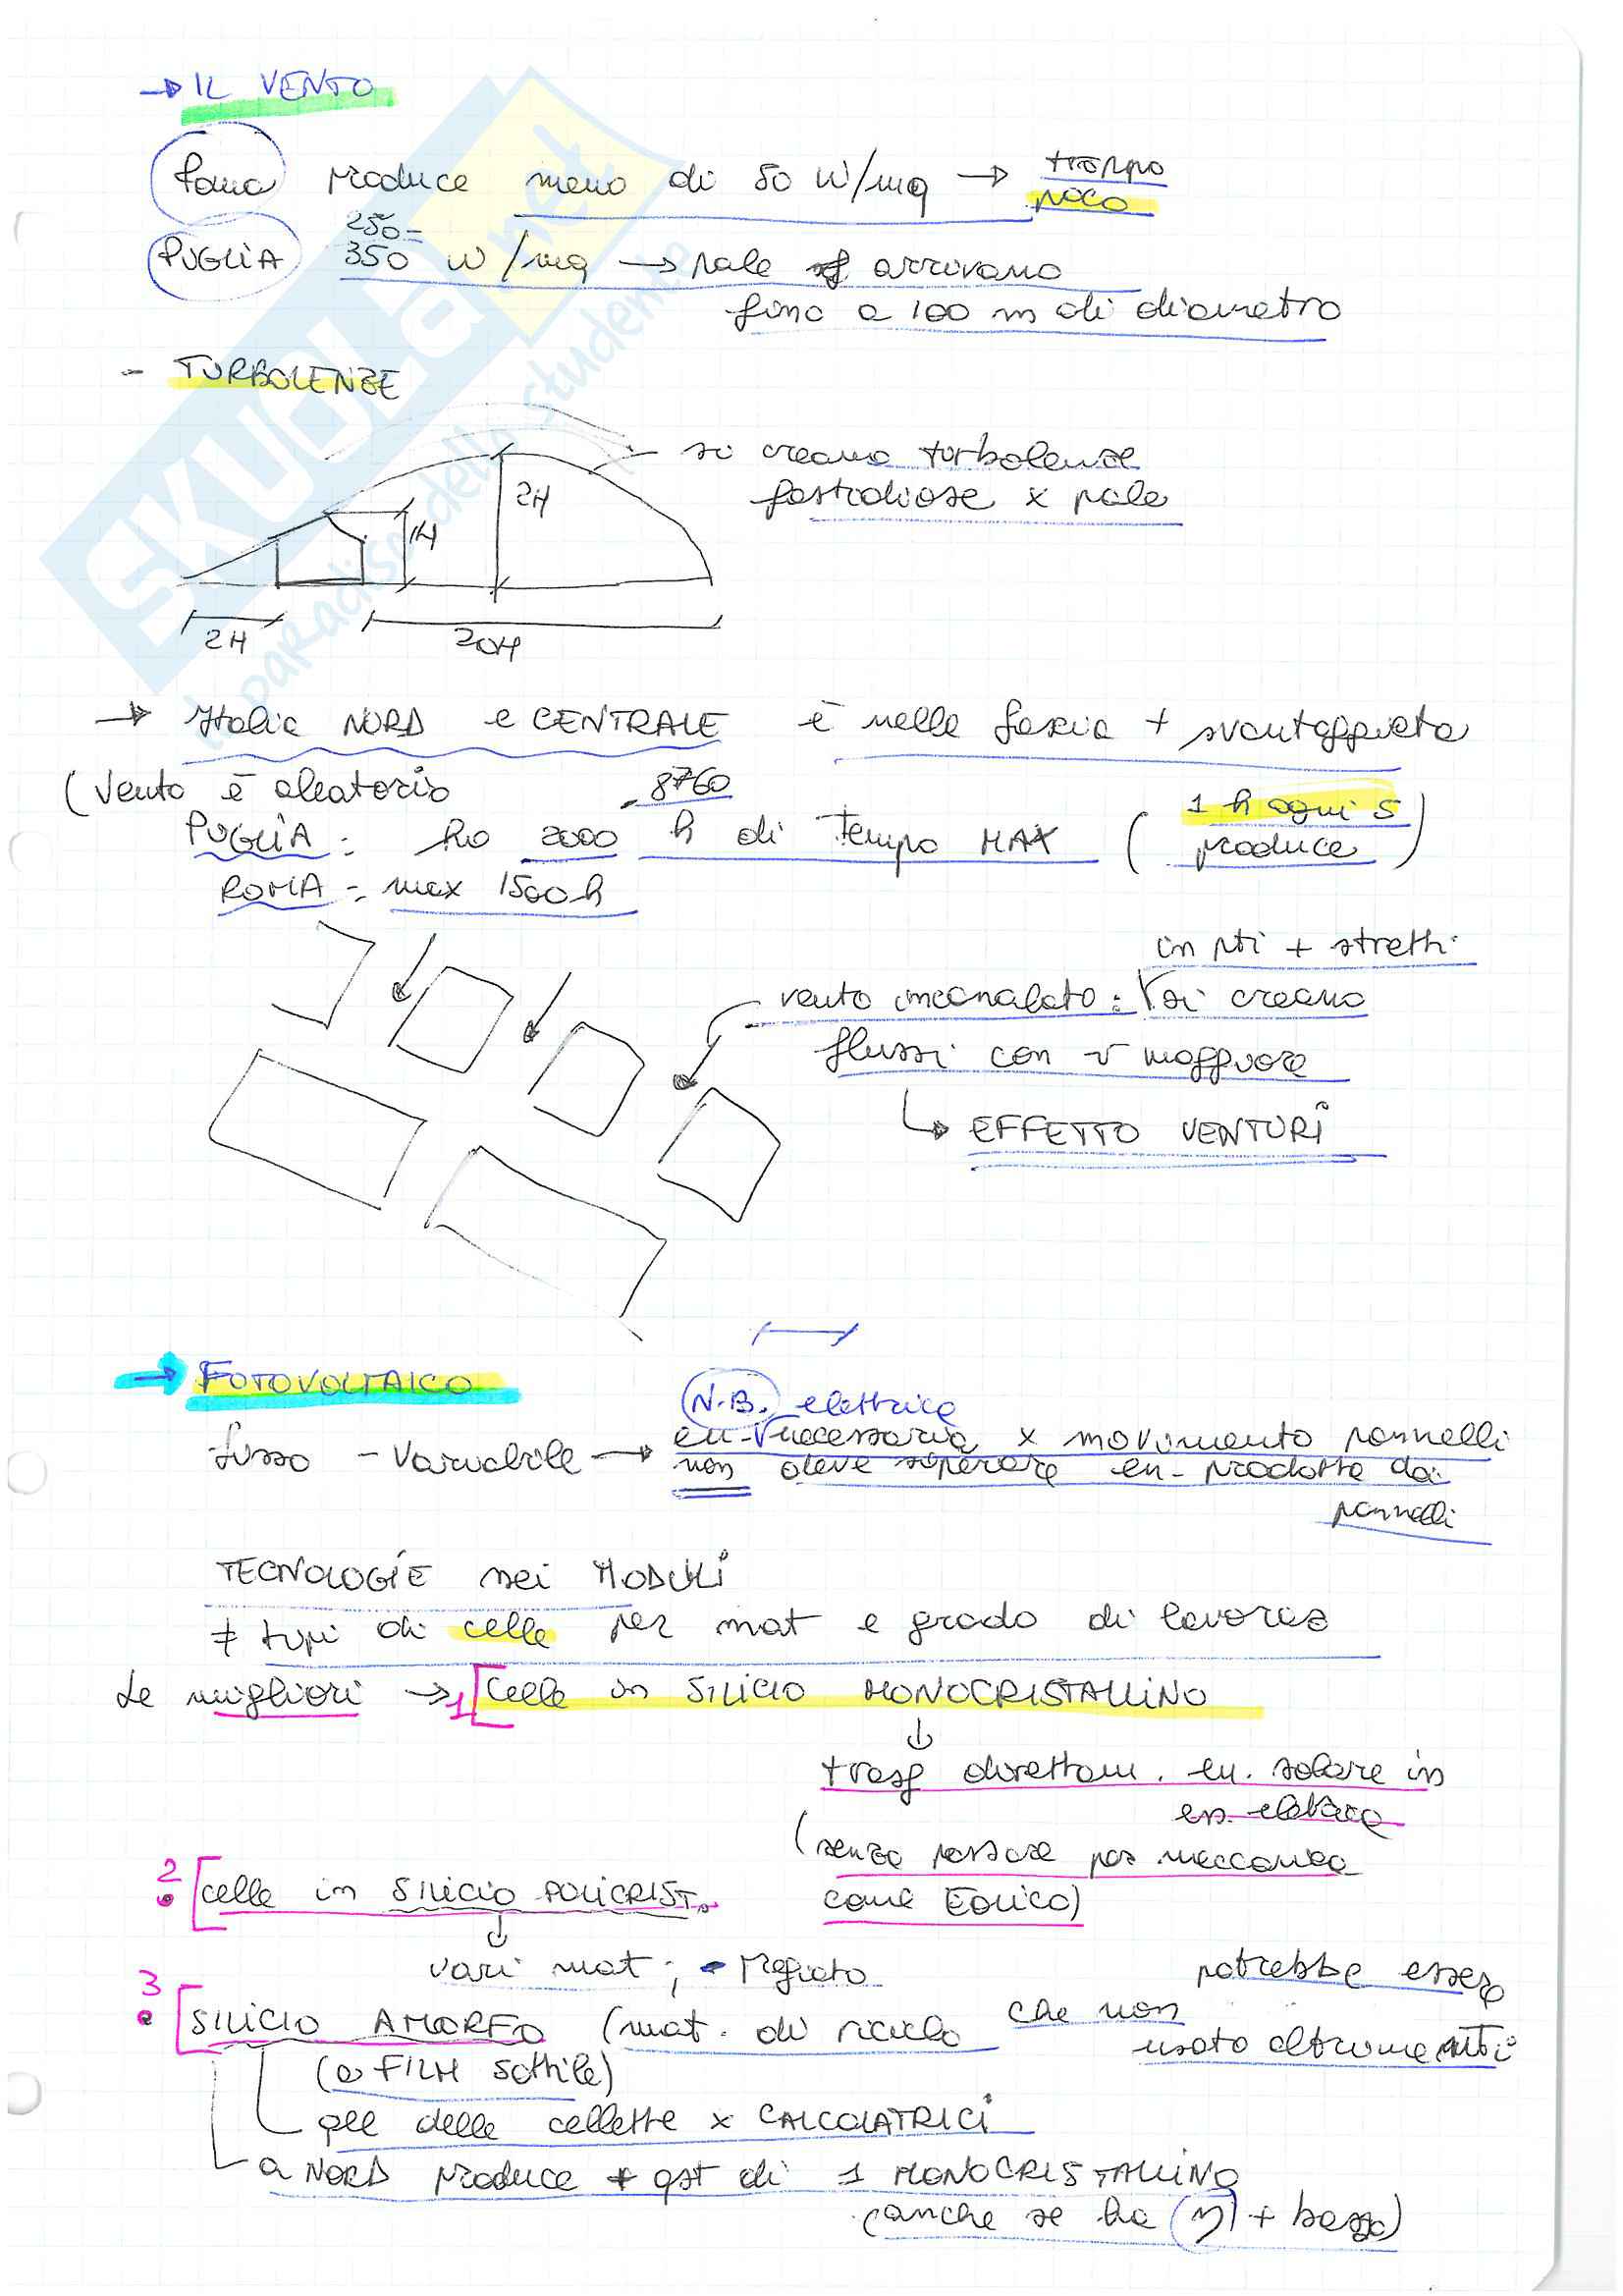 → IL VENTO
Roma produce meno di 50 W/mq → troppo
poco
250-
PUGLIA 350 W/mq → pale arrivano
fino a 100 m di diametro
- TURBOLENZE
si creano turbolenze
fastidiose x pale
2H
1H
2H
20H
→ Italia NORD e CENTRALE è nella fascia + svantaggiata
(Vento è aleatorio
8760
PUGLIA: ho 2000 h di tempo MAX (1 h ogni 5
produce)
ROMA: max 1500 h
in pti + stretti
vento incanalato: si creano
flussi con v maggiore
↳ EFFETTO VENTURI
→ FOTOVOLTAICO
N.B. elettrica
fisso - variabile → en. necessaria x movimento pannelli
non deve superare en. prodotta dai
pannelli
TECNOLOGIE nei MODULI
≠ tipi di celle per mat e grado di lavoraz
Le migliori → 1 [celle in SILICIO MONOCRISTALLINO
↓
trasf direttam. en. solare in
en. elettrica
(senza passare per meccanica
come EOLICO)
2 [celle in SILICIO POLICRIST.
↓
vari mat; - pregiato
3 [SILICIO AMORFO (mat. di riciclo che non
potrebbe essere
usato altrimenti
(a FILM sottile)
qll delle cellette x CALCOLATRICI
a NORD produce + qst di 1 MONOCRISTALLINO
(anche se ha η + basso)
SKUOLA.net
il paradiso dello studente